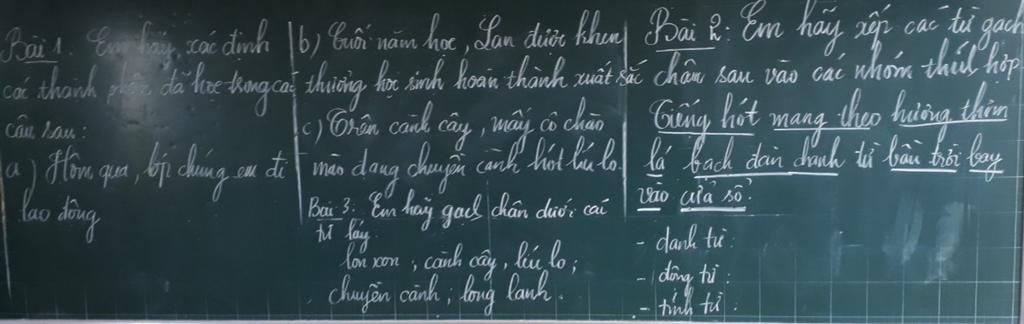 Bài 1. Em hãy xác định
các thành phần đã học trong các
câu sau:
a) Hôm qua, lớp chúng em đi
lao động
b) Cuối năm học, Lan được khen
thưởng học sinh hoàn thành xuất sắc
c) Trên cành cây, mấy cô chào
mào đang chuyền cành hót líu lo.
Bài 3: Em hãy gạch chân dưới các
từ láy
lon xon, cành cây, líu lo;
chuyền cành, long lanh.
Bài 2: Em hãy xếp các từ gạch
chân sau vào các nhóm thích hợp
Tiếng hót mang theo hương thơm
lá bạch đàn chanh từ bầu trời bay
vào cửa sổ.
- danh từ:
- động từ:
- tính từ: